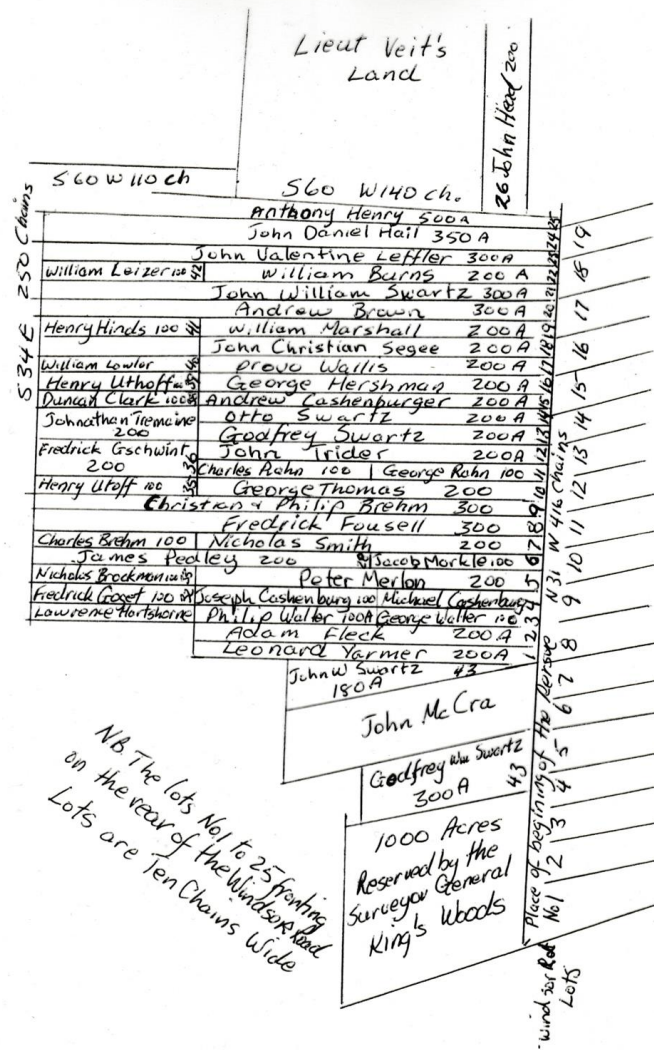 Lieut Veit's
Land
26 John Head 200
S60 W110 ch
S60 W140 ch.
S34E 250 Chains
Anthony Henry 500A
John Daniel Hail 350 A
John Valentine Leffler 300A
William Leizer 100 42 William Burns 200 A
John William Swartz 300A
Andrew Brown 300A
Henry Hinds 100 41 William Marshall 200A
John Christian Segee 200A
William Lowlor 40 Provo Wallis 200A
Henry Uthoff George Hershman 200A
Duncan Clark 100 Andrew Cashenburger 200A
Johnathan Tremaine 200 Otto Swartz 200A
Godfrey Swartz 200A
Fredrick Gschwint 200 36 John Trider 200A
Charles Rahn 100 George Rahn 100
Henry Utoff 100 35 George Thomas 200
Christian + Philip Brehm 300
Fredrick Fousell 300
Charles Brehm 100 Nicholas Smith 200
James Pedley 200 Jacob Morkle 100
Nicholas Brockman 100 Peter Merlon 200
Fredrick Goget 100 Joseph Cashenburg 100 Michael Cashenburg
Lawrence Hartshorne Philip Walter 100A George Walter 100
Adam Fleck 200A
Leonard Yarmer 200A
John W Swartz 43
180A
John McCra
Godfrey Wm Swartz
300A 43
1000 Acres
Reserved by the
Surveyor General
King's Woods
1 2 3 4 5 6 7 8 9 10 11 12 13 14 15 16 17 18 19 20 21 22 23 24 25
Place of begining of the
N31 W 416 chains
No1 2 3 4 5 6 7 8 9 10 11 12 13 14 15 16 17 18 19
Windsor Rod
Lots
NB. The lots No1 to 25 fronting
on the rear of the Windsor Road
Lots are Ten Chains Wide